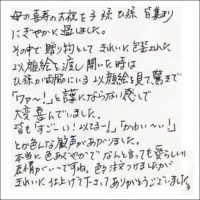 母の喜寿のお祝を子孫ひ孫皆集まり
にぎやかに過しました。
その中で贈り物として きれいに包装された
似顔絵を渡し 開いた時は
ひ孫が両脇にいる似顔絵を見て驚きで
「ワァ〜!」と言葉にならない感じで
大変喜んでいました。
皆も「すごーい!似てるー!」「かわいーい!」
と色んな歓声があがりました。
本当に色あざやかで なんと言っても愛らしい
表情がいいですね。色々注文つけましたが
きれいに仕上げて下さってありがとうございました。